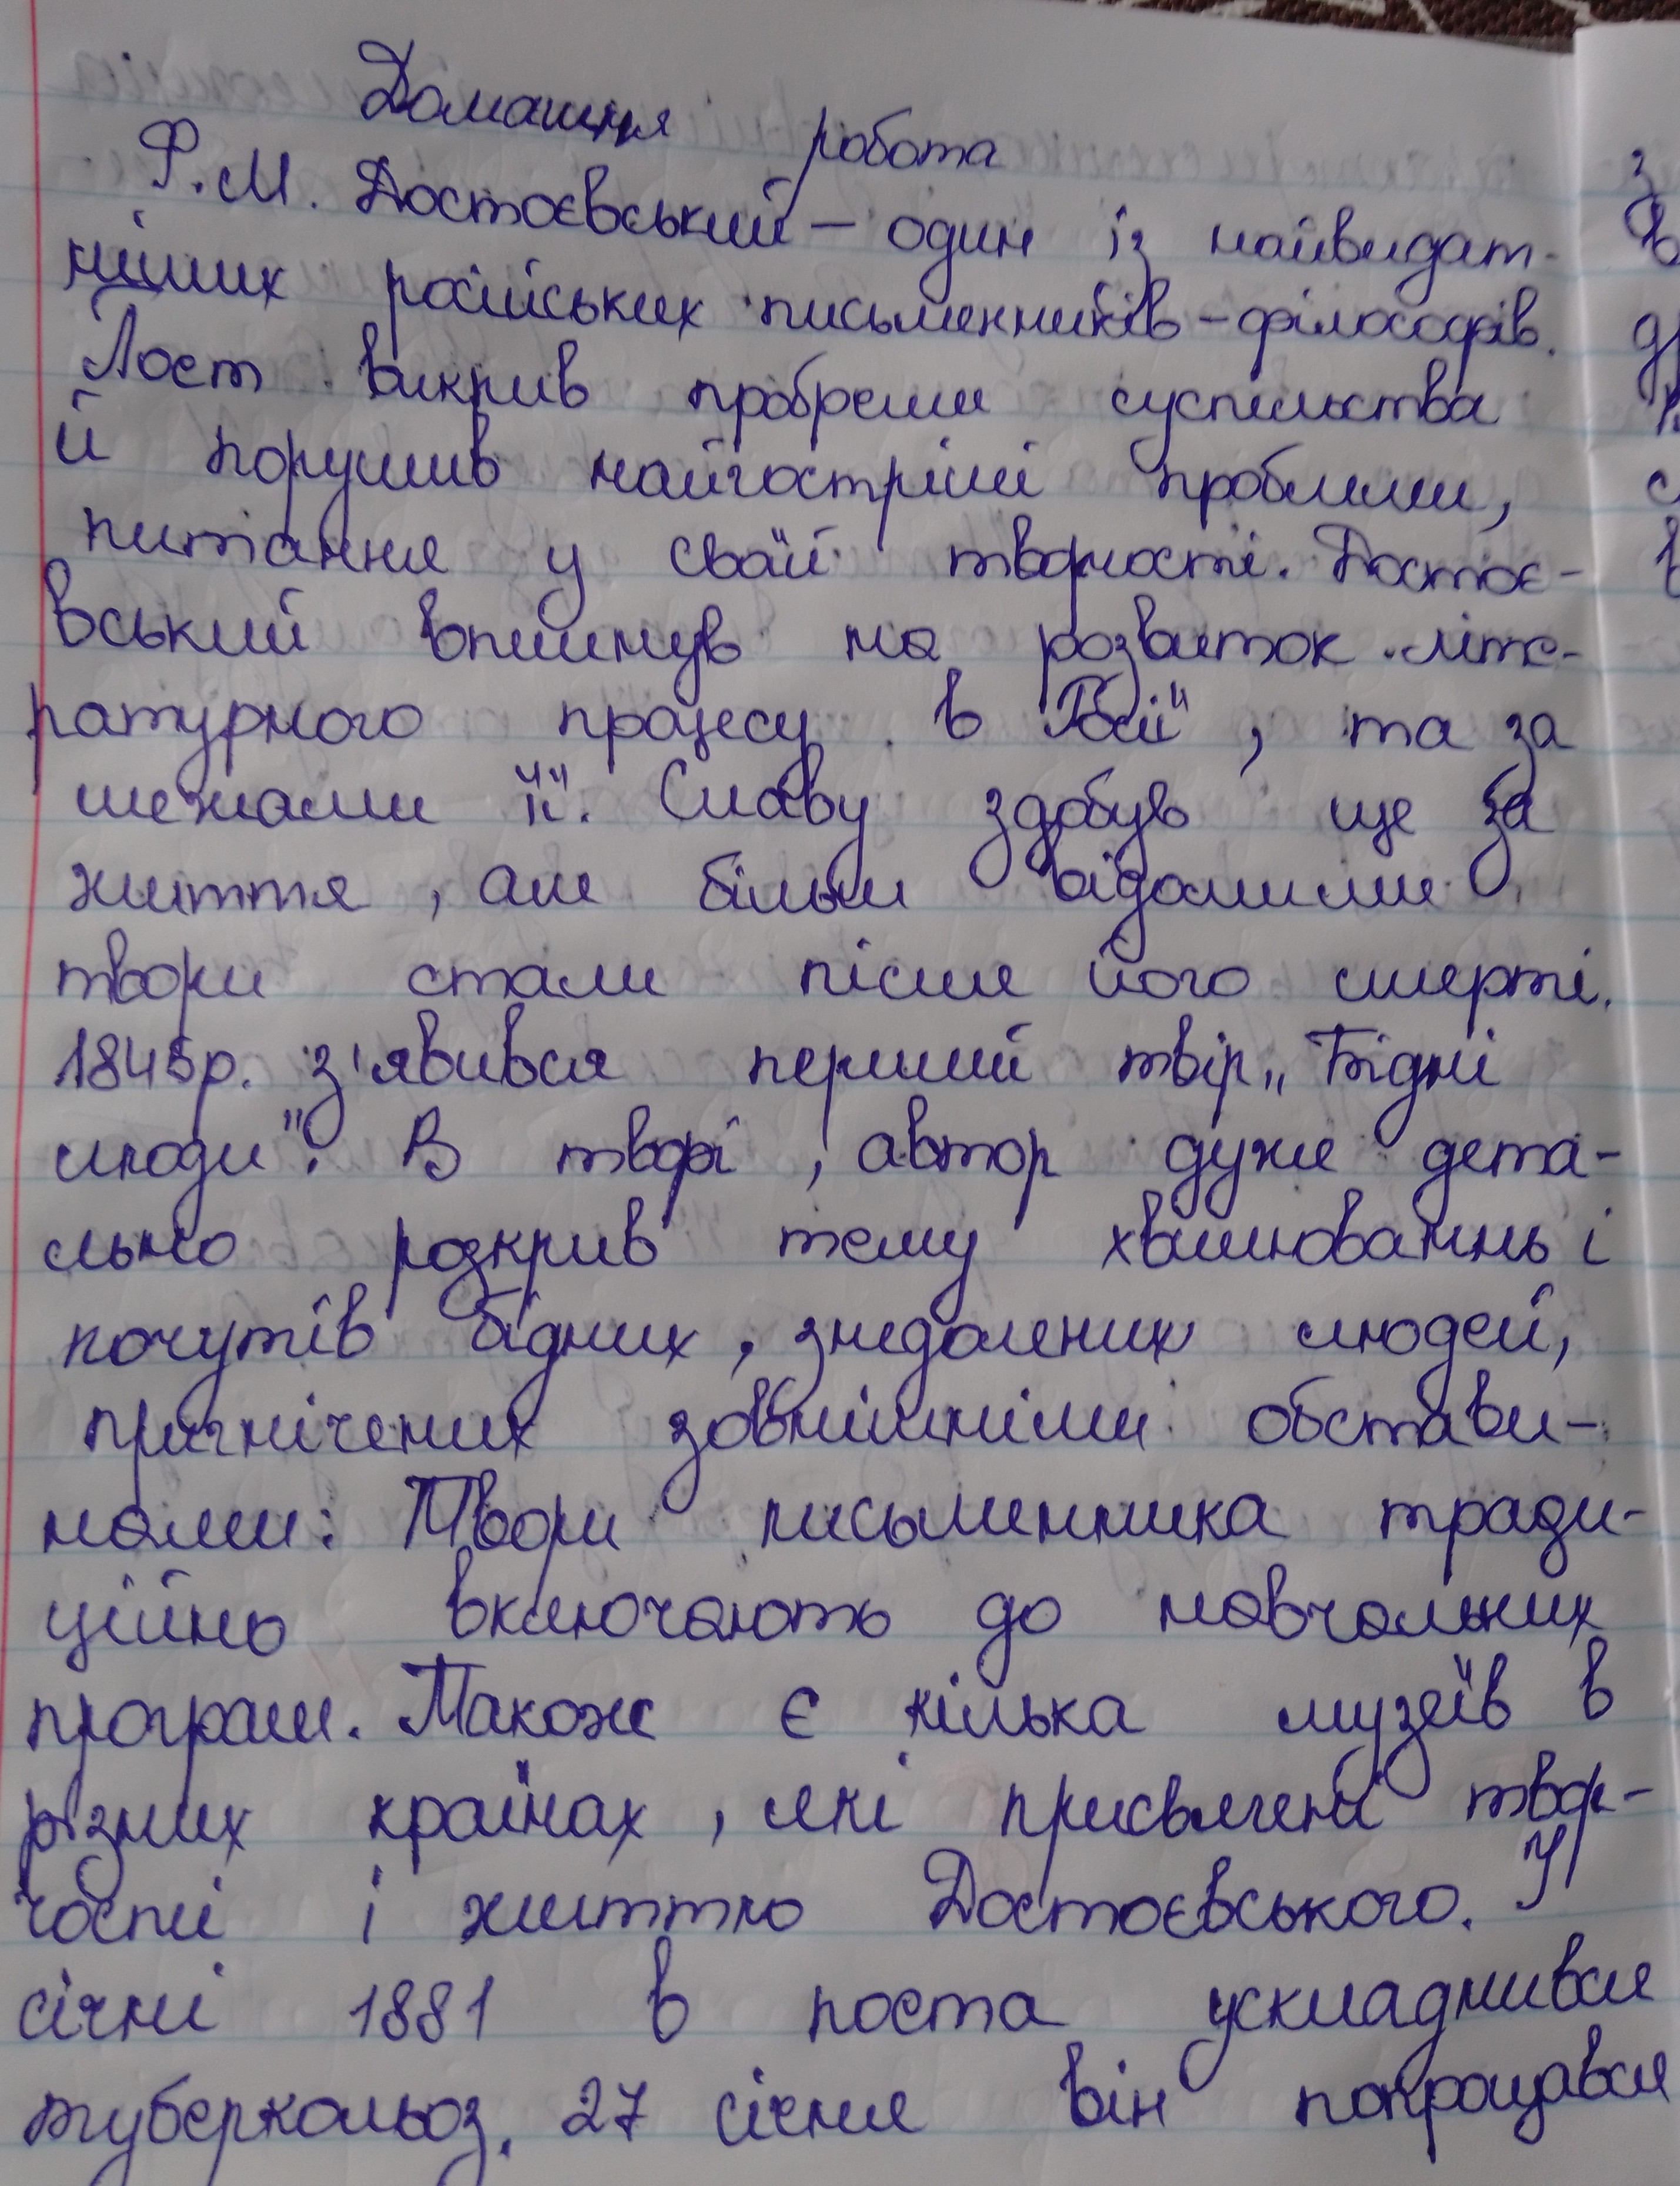 Домашня робота
Ф.М. Достоєвський – один із найвидат-
ніших російських письменників-філософів.
Поет викрив проблеми суспільства
й порушив найгостріші проблеми,
питання у своїй творчості. Достоє-
вський вплинув на розвиток літе-
ратурного процесу в Росії, та за
межами її. Славу здобув ще за
життя, але більш відомими
твори стали після його смерті.
1845р. з'явився перший твір „Бідні
люди". В творі, автор дуже дета-
льно розкрив тему хвилюваннь і
почуттів бідних, знедолених людей,
пригнічених зовнішніми обстави-
нами. Твори письменника тради-
ційно включають до навчальних
програм. Також є кілька музеїв в
різних країнах, які присвячені твор-
чості і життю Достоєвського. У
січні 1881 в поета ускладнився
туберкольоз. 27 січня він попрощався